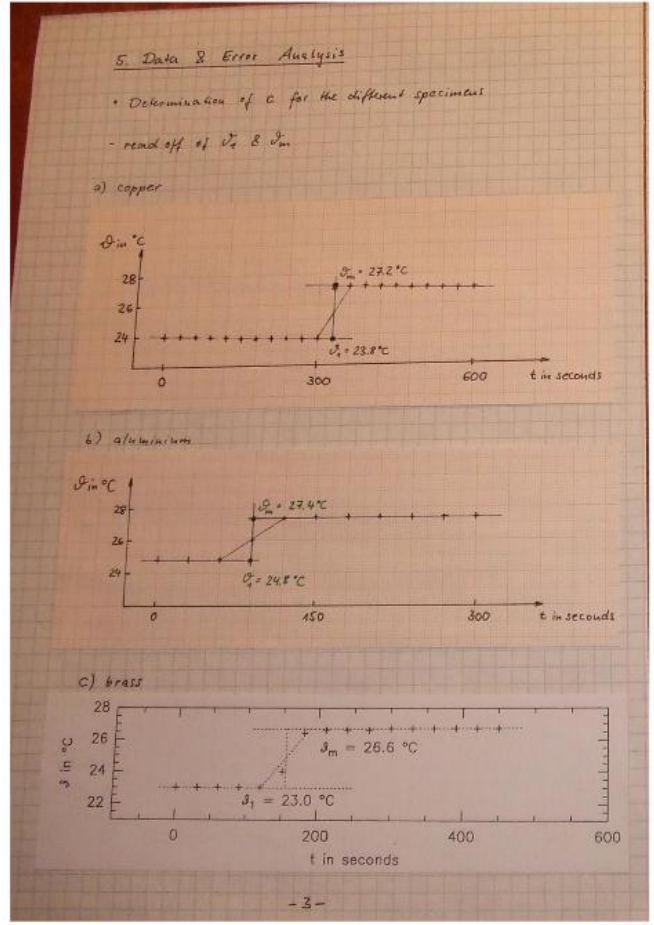 5. Data & Error Analysis
• Determination of c for the different specimens
- read off of ϑ₁ & ϑₘ
a) copper
ϑ in °C
ϑₘ = 27.2 °C
28
26
24
ϑ₁ = 23.8 °C
0 300 600 t in seconds
b) aluminium
ϑ in °C
ϑₘ = 27.4 °C
28
26
24
ϑ₁ = 24.8 °C
0 150 300 t in seconds
c) brass
28
26
24
22
ϑ in °C
ϑₘ = 26.6 °C
ϑ₁ = 23.0 °C
0 200 400 600
t in seconds
- 3 -